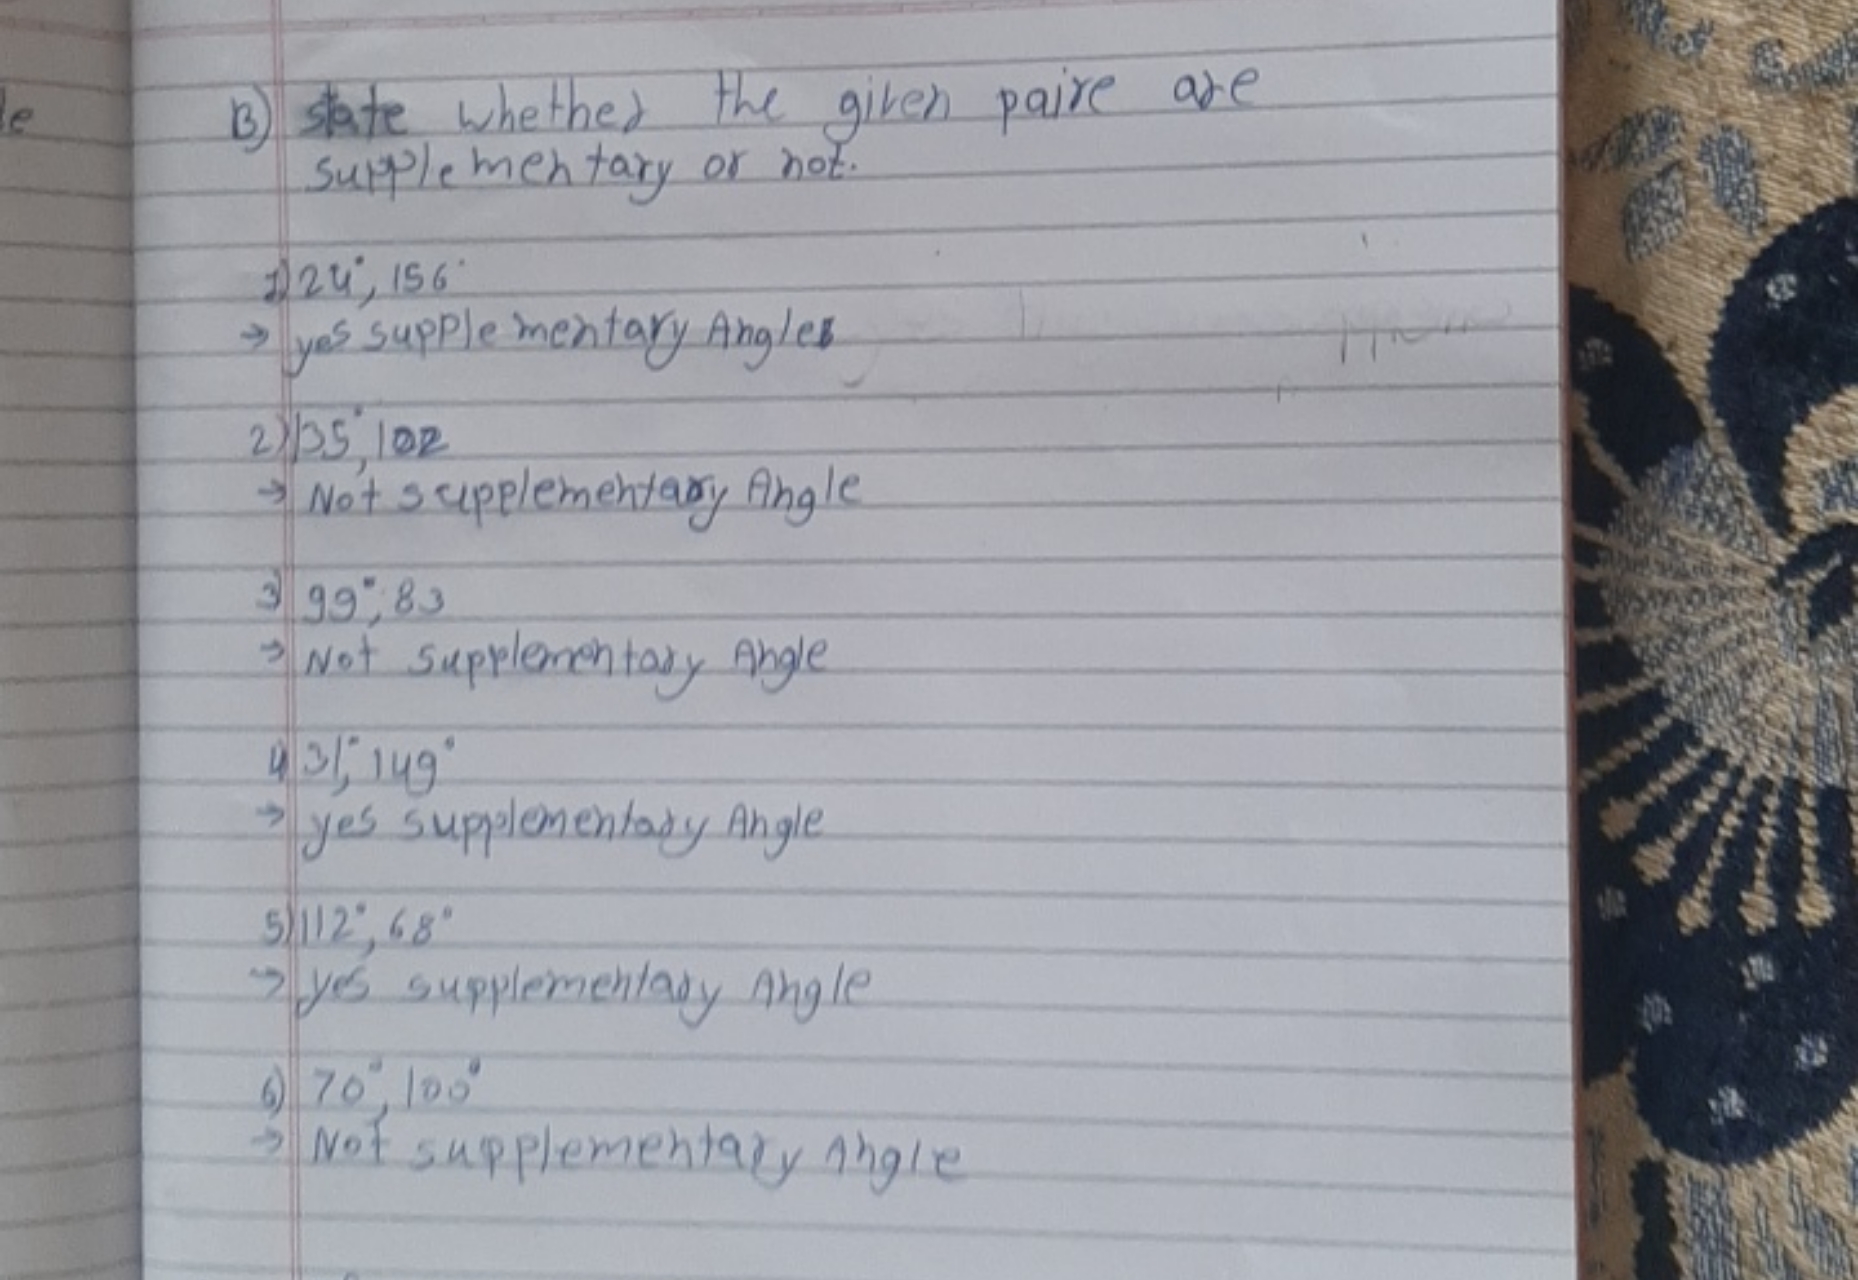 le
B) state whether the given paire are
supplementary or not.
1) 24°, 156°
→ yes supplementary Angles
2) 135°, 102
→ Not supplementary Angle
3) 99°, 83
→ Not supplementary Angle
4) 31°, 149°
→ yes supplementary Angle
5) 112°, 68°
→ yes supplementary Angle
6) 70°, 100°
→ Not supplementary Angle